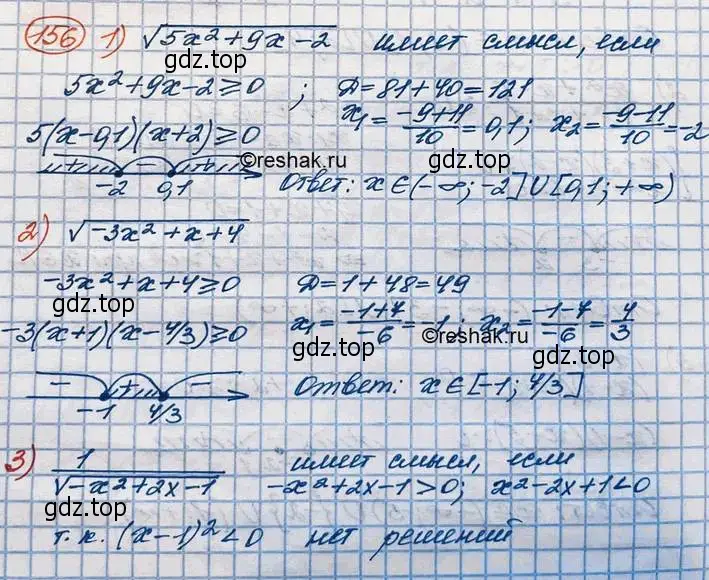 156 1) √5x²+9x-2 имеет смысл, если
5x²+9x-2⩾0 ; D=81+40=121
gdz.top
x₁=(-9+11)/10=0,1; x₂=(-9-11)/10=-2
gdz.top
5(x-0,1)(x+2)⩾0
+ − + ©reshak.ru
-2 0,1 Ответ: x∈(-∞;-2]∪[0,1;+∞)
gdz.top
2) √-3x²+x+4
-3x²+x+4⩾0 D=1+48=49
gdz.top
-3(x+1)(x-4/3)⩾0 x₁=(-1+7)/-6=-1; x₂=(-1-7)/-6=4/3
©reshak.ru
gdz.top gdz.top
− + −
-1 4/3 Ответ: x∈[-1; 4/3]
3) 1/√-x²+2x-1 имеет смысл, если
-x²+2x-1>0; x²-2x+1<0
gdz.top
т.к. (x-1)²<0 нет решений